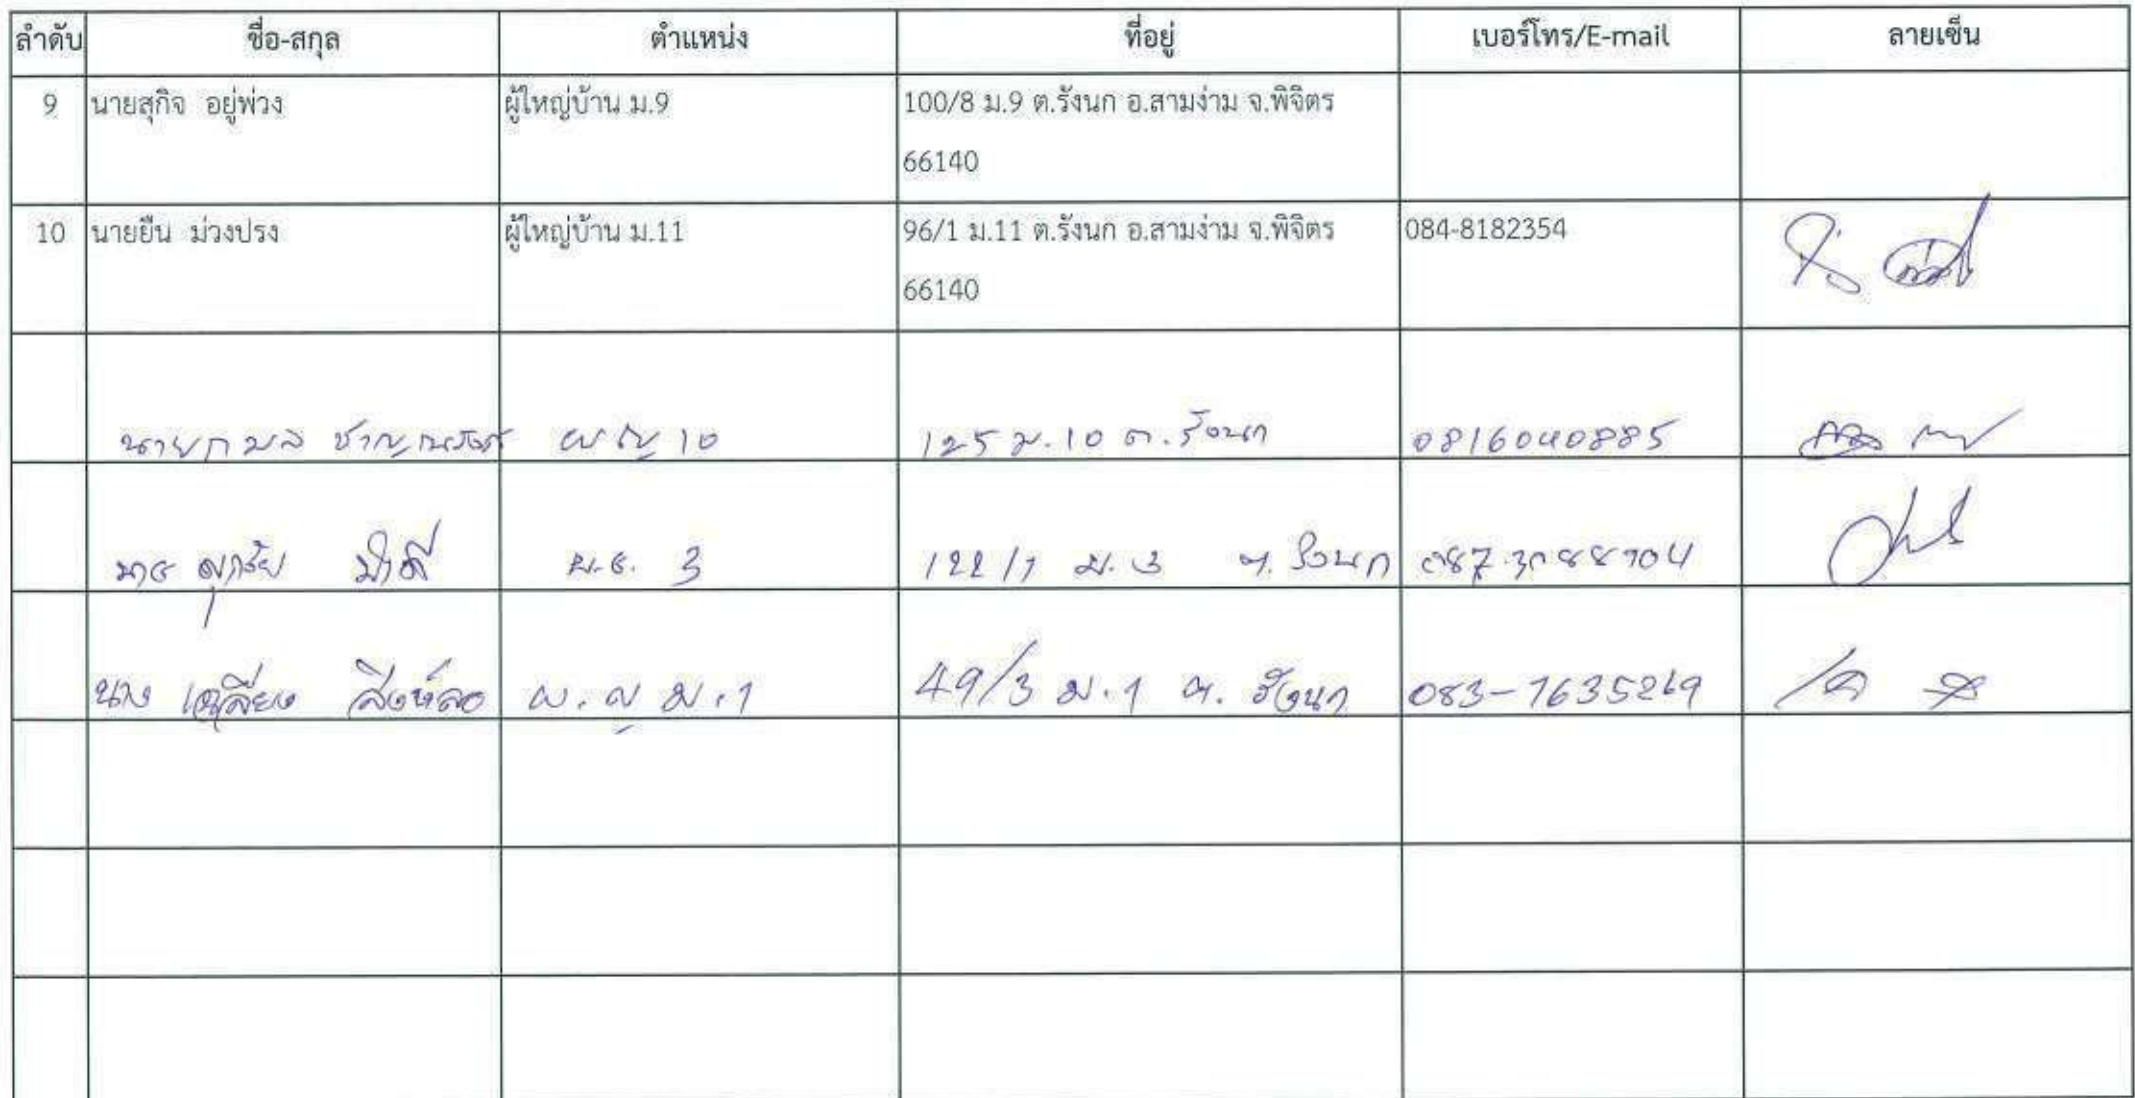 ลำดับ ชื่อ-สกุล ตำแหน่ง ที่อยู่ เบอร์โทร/E-mail ลายเซ็น
9 นายสุกิจ อยู่พ่วง ผู้ใหญ่บ้าน ม.9 100/8 ม.9 ต.รังนก อ.สามง่าม จ.พิจิตร
66140
10 นายยืน ม่วงปรง ผู้ใหญ่บ้าน ม.11 96/1 ม.11 ต.รังนก อ.สามง่าม จ.พิจิตร 084-8182354
66140
นายกมล ผญ 10 125 ม.10 ต.รังนก 0816040885
3 122/1 ม.3 ต.รังนก
นาง เฉลียว สิงห์ลอ ผ.ญ ม.1 49/3 ม.1 ต.รังนก 083-7635269